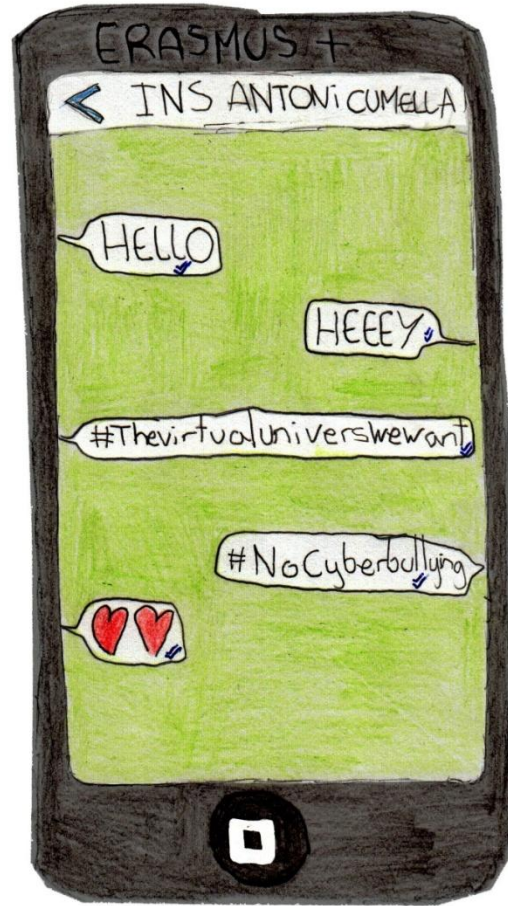 ERASMUS +
< INS ANTONi CUMELLA
HELLO
HEEEY
#Thevirtualuniverswewant
#NoCyberbullying